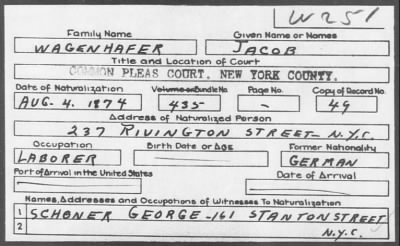 W251
Family Name Given Name or Names
WAGENHAFER JACOB
Title and Location of Court
COMMON PLEAS COURT, NEW YORK COUNTY.
Date of Naturalization Volume or Bundle No. Page No. Copy of Record No.
AUG. 4. 1874 435 - 49
Address of Naturalized Person
237 RIVINGTON STREET - N.Y.C.
Occupation Birth Date or Age Former Nationality
LABORER GERMAN
Port of Arrival in the United States Date of Arrival
Names, Addresses and Occupations of Witnesses To Naturalization
1 SCHONER GEORGE - 161 STANTON STREET
2 N.Y.C.